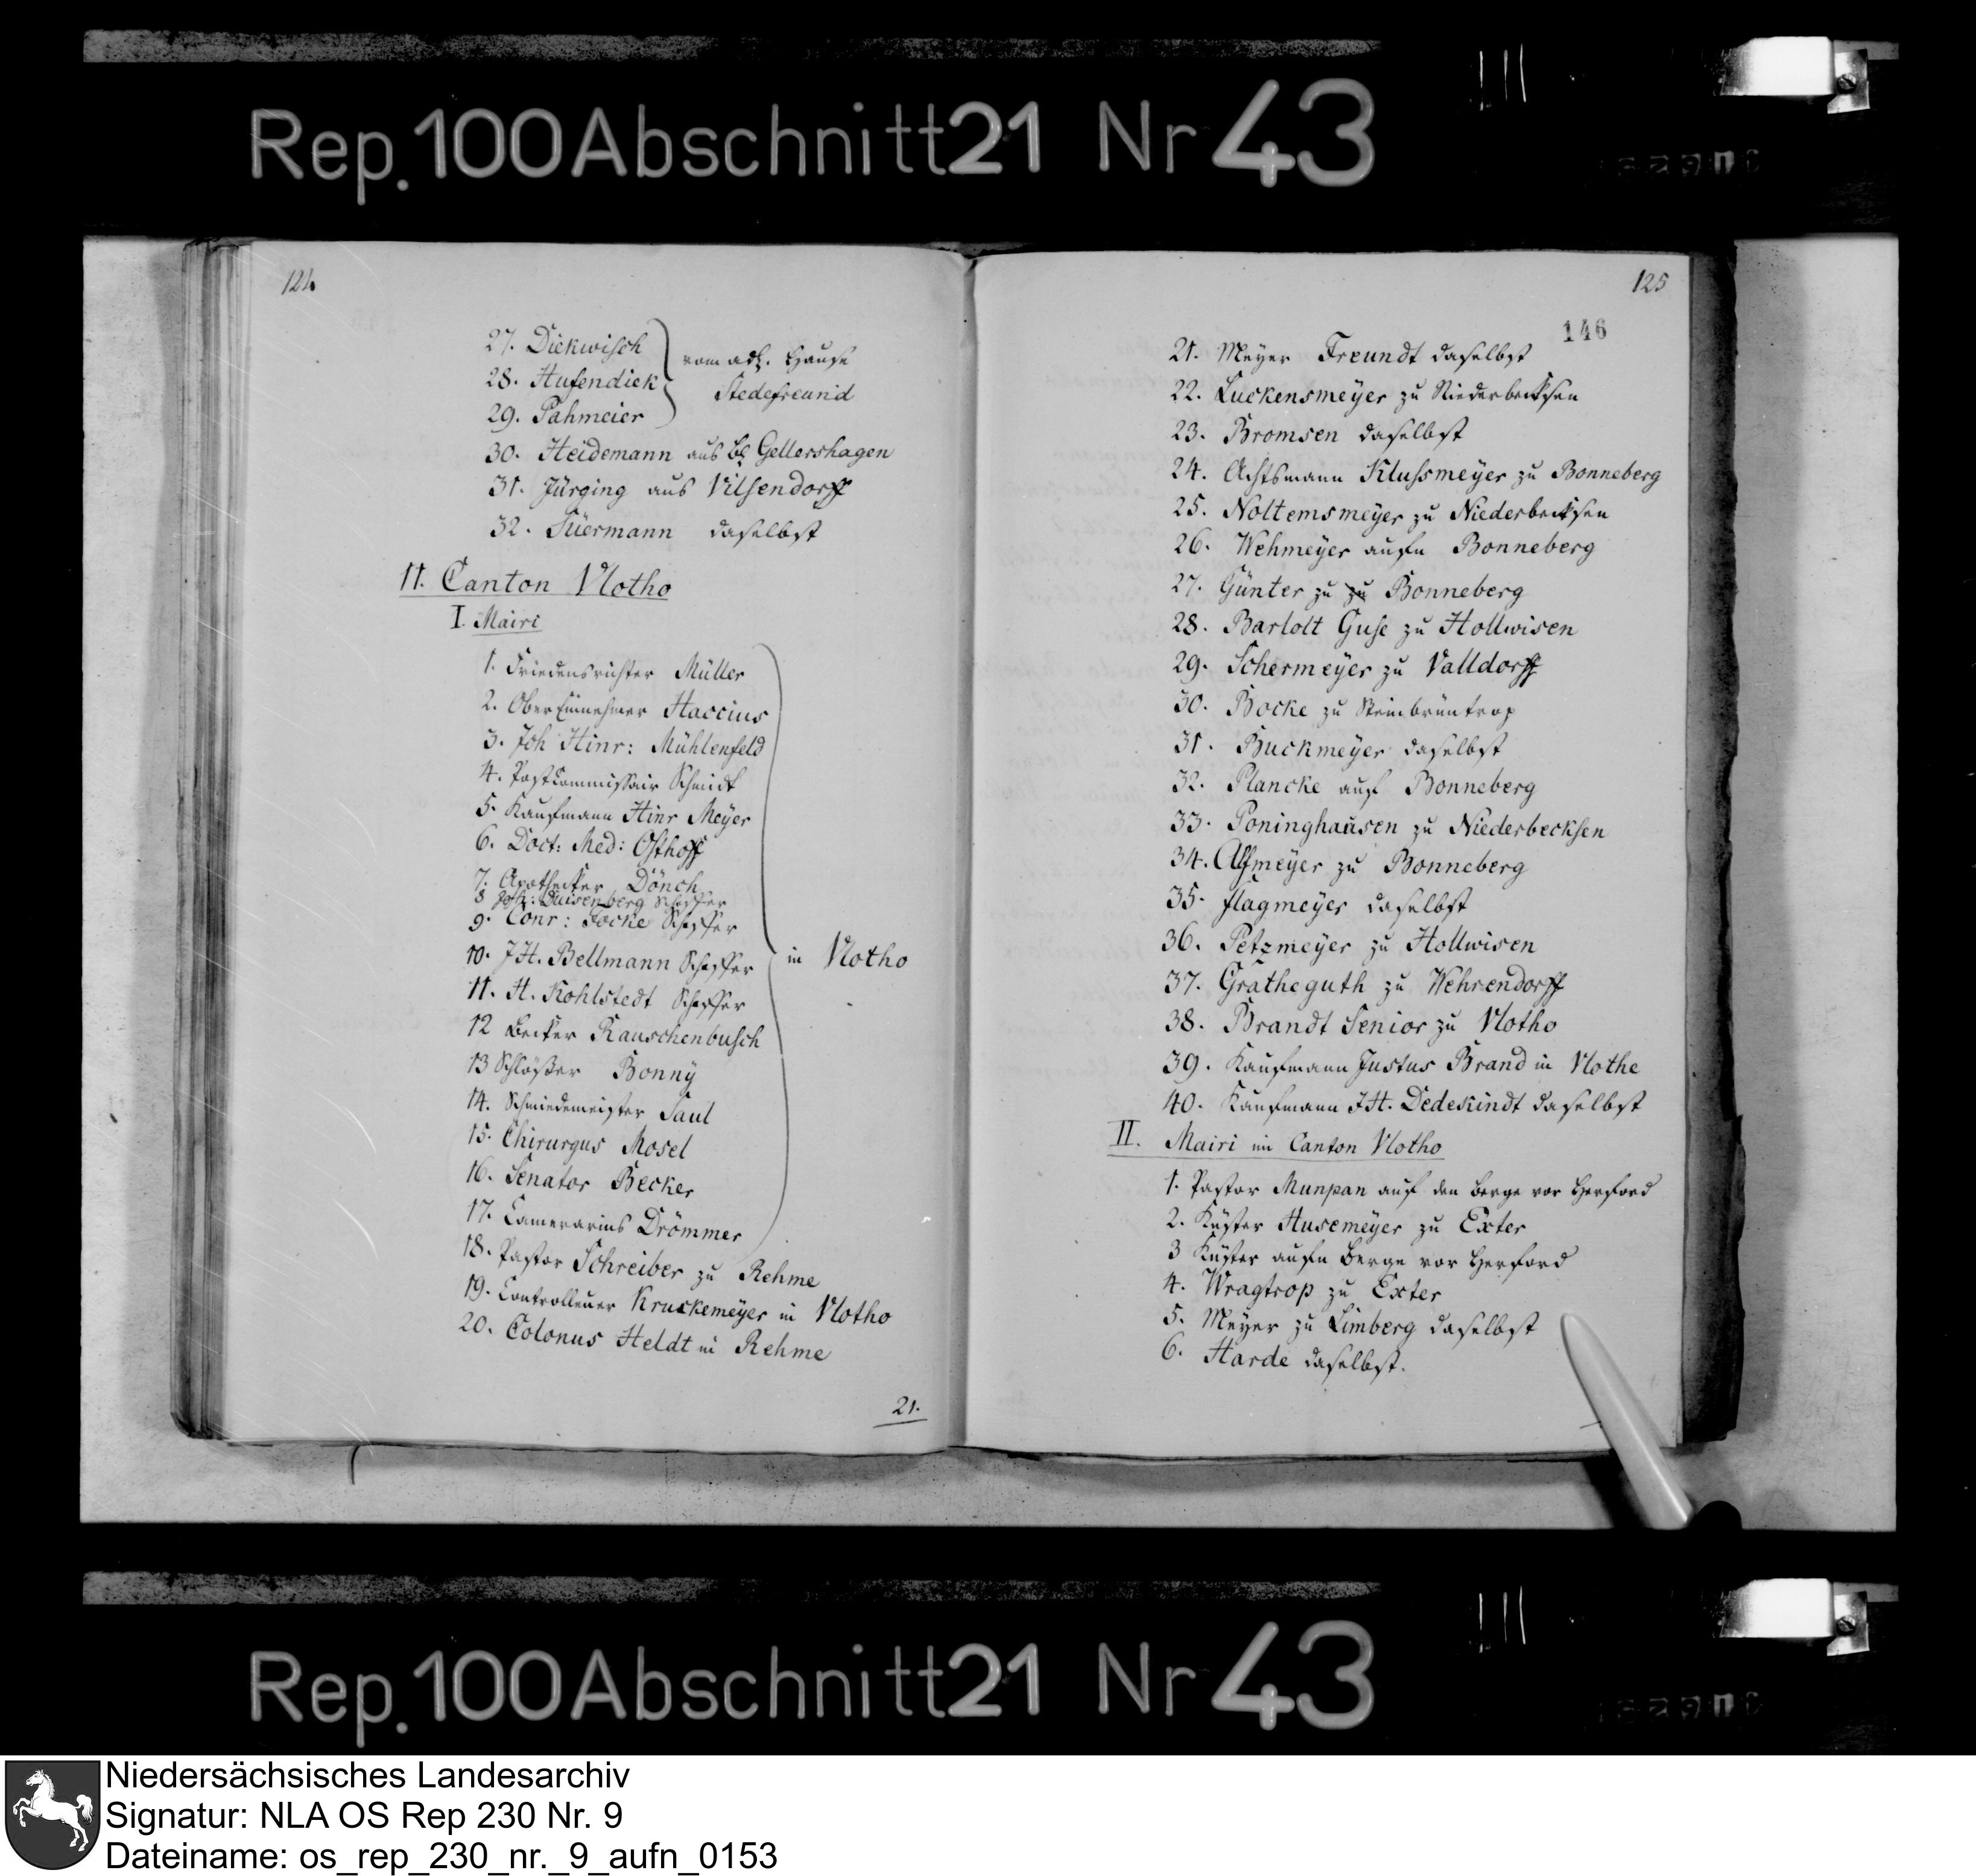 Rep. 100 Abschnitt 21 Nr 43
124
27. Diekwisch
28. Hufendiek
29. Pahmeier
vom adl. Hause
Stedefreund
30. Heidemann aus Gellershagen
31. Jürging aus Vilsendorff
32. Süermann daselbst
11. Canton Vlotho
I. Mairi
1. Friedensrichter Müller
2. Ober Einnehmer Haccius
3. Joh Hinr: Mühlenfeld
4. Post Commissair Schmidt
5. Kaufmann Hinr Meyer
6. Doct: Med: Osthoff
7. Apothecker Dönch
8 Duisenberg Schiffer
9. Conr: Focke Schiffer
10. J H. Bellmann Schiffer
11. H. Kohlstedt Schiffer
12 Becker Rauschenbusch
13 Schlößer Bonny
14. Schmiedemeister Saul
15. Chirurgus Mosel
16. Senator Becker
17. Camerarius Drömmer
in Vlotho
18. Pastor Schreiber zu Rehme
19. Controlleuer Kruckemeyer in Vlotho
20. Colonus Heldt in Rehme
21.
125
146
21. Meyer Freundt daselbst
22. Luckensmeyer zu Niederbecksen
23. Bromsen daselbst
24. Klussmeyer zu Bonneberg
25. Noltemsmeyer zu Niederbecksen
26. Wehmeyer aufn Bonneberg
27. Günter zu zu Bonneberg
28. Barlolt Guse zu Hollwisen
29. Schermeyer zu Valldorff
30. Bocke zu Steinbrüntrop
31. Buckmeyer daselbst
32. Plancke auf Bonneberg
33. Poninghausen zu Niederbecksen
34. Alfmeyer zu Bonneberg
35. Flagmeyer daselbst
36. Petzmeyer zu Hollwisen
37. Gratheguth zu Wehrendorff
38. Brandt Senior zu Vlotho
39. Kaufmann Justus Brand in Vlothe
40. Kaufmann J H. Dedekindt daselbst
II. Mairi im Canton Vlotho
1. Pastor Munpan auf den Berge vor Herford
2. Küster Husemeyer zu Exter
3 Küster aufn Berge vor Herford
4. Wragtrop zu Exter
5. Meyer zu Limberg daselbst
6. Harde daselbst.
Rep. 100 Abschnitt 21 Nr 43
Niedersächsisches Landesarchiv
Signatur: NLA OS Rep 230 Nr. 9
Dateiname: os_rep_230_nr._9_aufn_0153